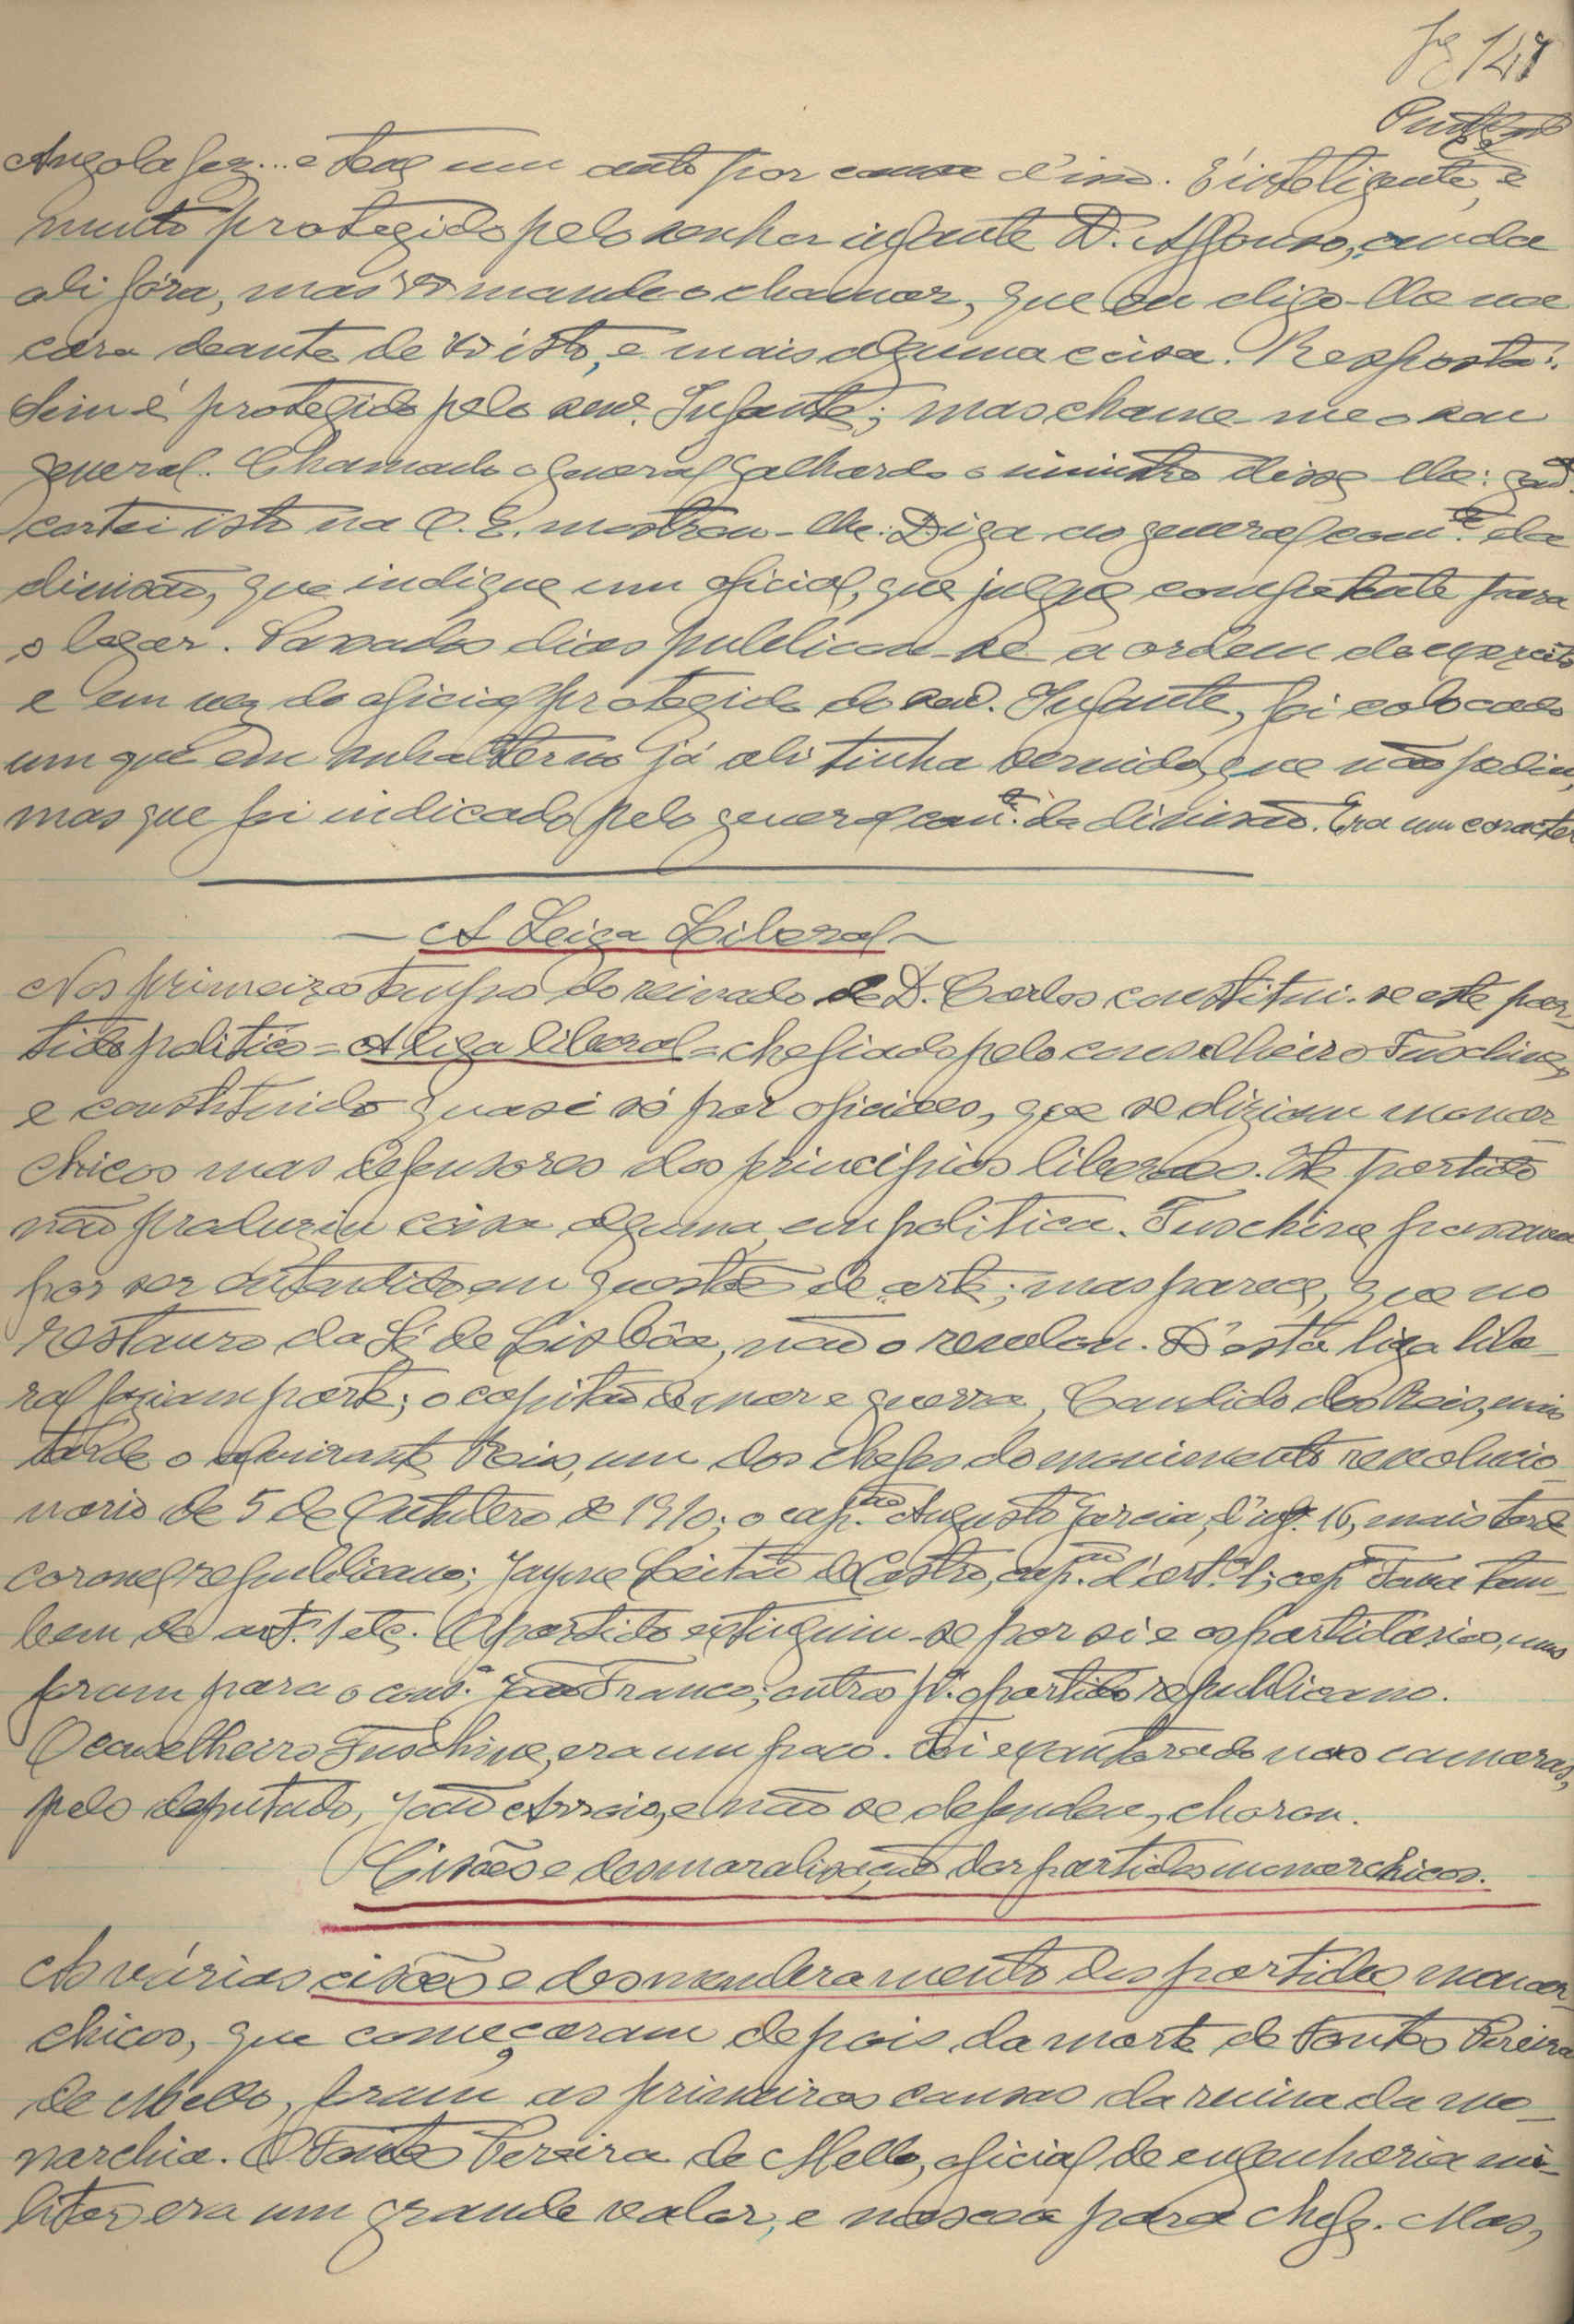 Fg 147
Angola fez... e teve um auto por causa d'isso. É inteligente, e
muito protegido pelo senhor infante D. Affonso, anda
ali fóra, mas mande-o chamar, que eu digo-lhe na
cára deante de isto, e mais alguma coisa. Resposta:
Sim é protegido pelo senr. Infante; mas chame-me o seu
general. Chamado o general Galhardo o ministro disse-lhe:
cortei isto na O. E. mostrou-lhe. Diga ao general comte. da
divisão, que indique um oficial, que julgue competente para
o logar. Passados dias publicou-se a ordem do exercito
e em vez do oficial protegido do senr. Infante, foi colocado
um que em subalterno já ali tinha servido, que não pediu,
mas que foi indicado pelo general comte. da divisão. Era um caracter
— A Leiga Liberal —
Nos primeiros tempos do reinado de D. Carlos constitui-se este par-
tido politico = A liga liberal = chefiado pelo conselheiro Fuschine,
e constituido quasi só por oficiaes, que se diziam monar-
chicos mas defensores dos principios liberaes. Este partido
não produziu coisa alguma em politica. Fuschine passava
por ser entendido em questão de arte; mas parece, que no
restauro da Sé de Lisbôa, não o revelou. D'esta liga libe-
ral faziam parte; o capitão de mar e guerra, Candido dos Reis, mais
tarde o almirante Reis, um dos chefes do movimento revolucio-
nario de 5 de Outubro de 1910; o capitão Augusto Garcia, d'inf. 16, mais tarde
coronel republicano; Jayme Leitão de Castro, capm. d'arta. 1; capm Fava tam-
bem de art. 1 etc. O partido extinguiu-se por si e os partidarios, uns
foram para o consº. João Franco; outros pª. o partido republicano.
O conselheiro Fuschine, era um fraco. Foi exautorado nas camaras,
pelo deputado, João Arroio, e não se defendeu, chorou.
Cisões e desmoralisação dos partidos monarchicos.
As várias cisões e desmembramento dos partidos monar-
chicos, que começaram depois da morte de Fontes Pereira
de Mello, foram as primeiras causas da ruina da mo-
narchia. O Fontes Pereira de Mello, oficial de engenharia mi-
litar era um grande valor, e nascera para chefe. Mas,